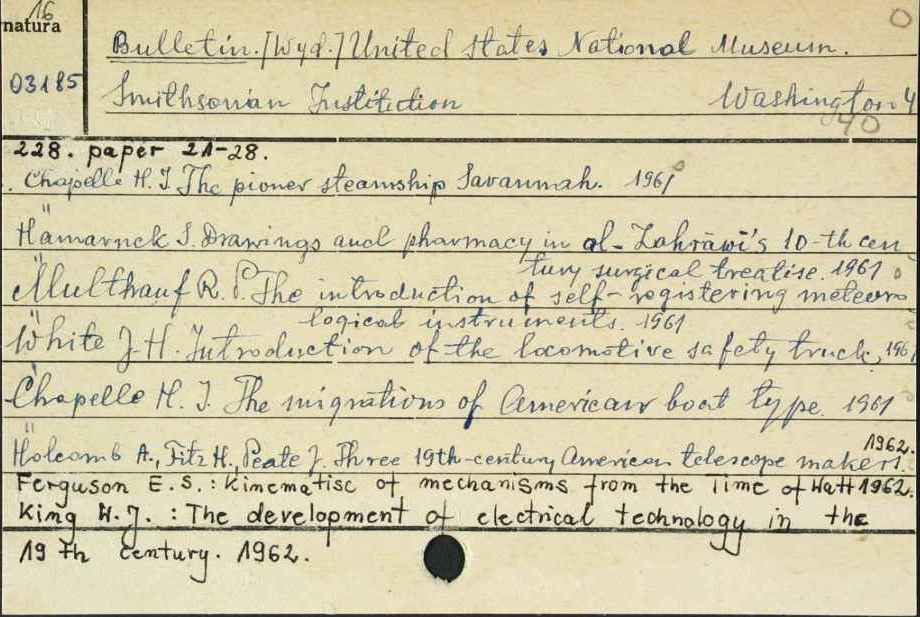 16
natura
03185
Bulletin. [Wyd.] United States National Museum.
Smithsonian Institution Washington 4
40
228. paper 21-28.
Chapelle H. I. The pioner steamship Savannah. 1961
"
Hamarnek S. Drawings and pharmacy in al-Zahrāwī's 10-th cen
tury surgical treatise. 1961
"
Multhauf R. P. The introduction of self-registering meteoro
logical instruments. 1961
"
White J. H. Introduction of the locomotive safety truck, 1961
"
Chapelle H. I. The migrations of American boat type. 1961
"
1962.
Holcomb A., Fitz H., Peate J. Three 19th-century American telescope makers.
Ferguson E. S. : Kinematisc of mechanisms from the Time of Watt 1962.
King W. J. : The development of electrical technology in the
19 th century. 1962.